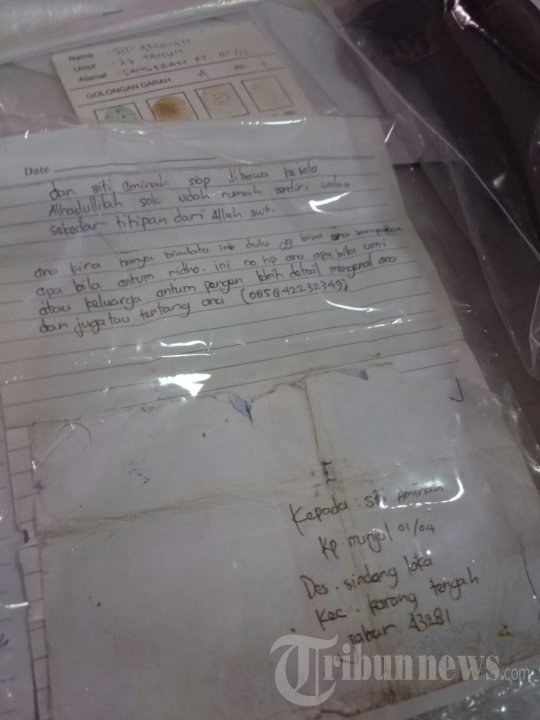 Nama : SITI AMINAH
Umur : 22 TAHUN
Alamat : RT. 01/12
GOLONGAN DARAH A
Date
dan siti aminah siap dibawa ke solo
Alhadullilah solo udah rumah sendiri walau
sekedar titipan dari Allah swt.
ana kira hanya biodata ini dulu yg bisa ana sampaikan
apa bila antum ridho. ini no hp ana apa bila umi
atau keluarga antum pengen lebih detail mengenal ana
dan juga tau tentang ana (085842232349)
Kepada : siti Aminah
Kp munjul 01/04
Des. sindang laka
Kec. karang tengah
jabar 43281
Tribunnews.com